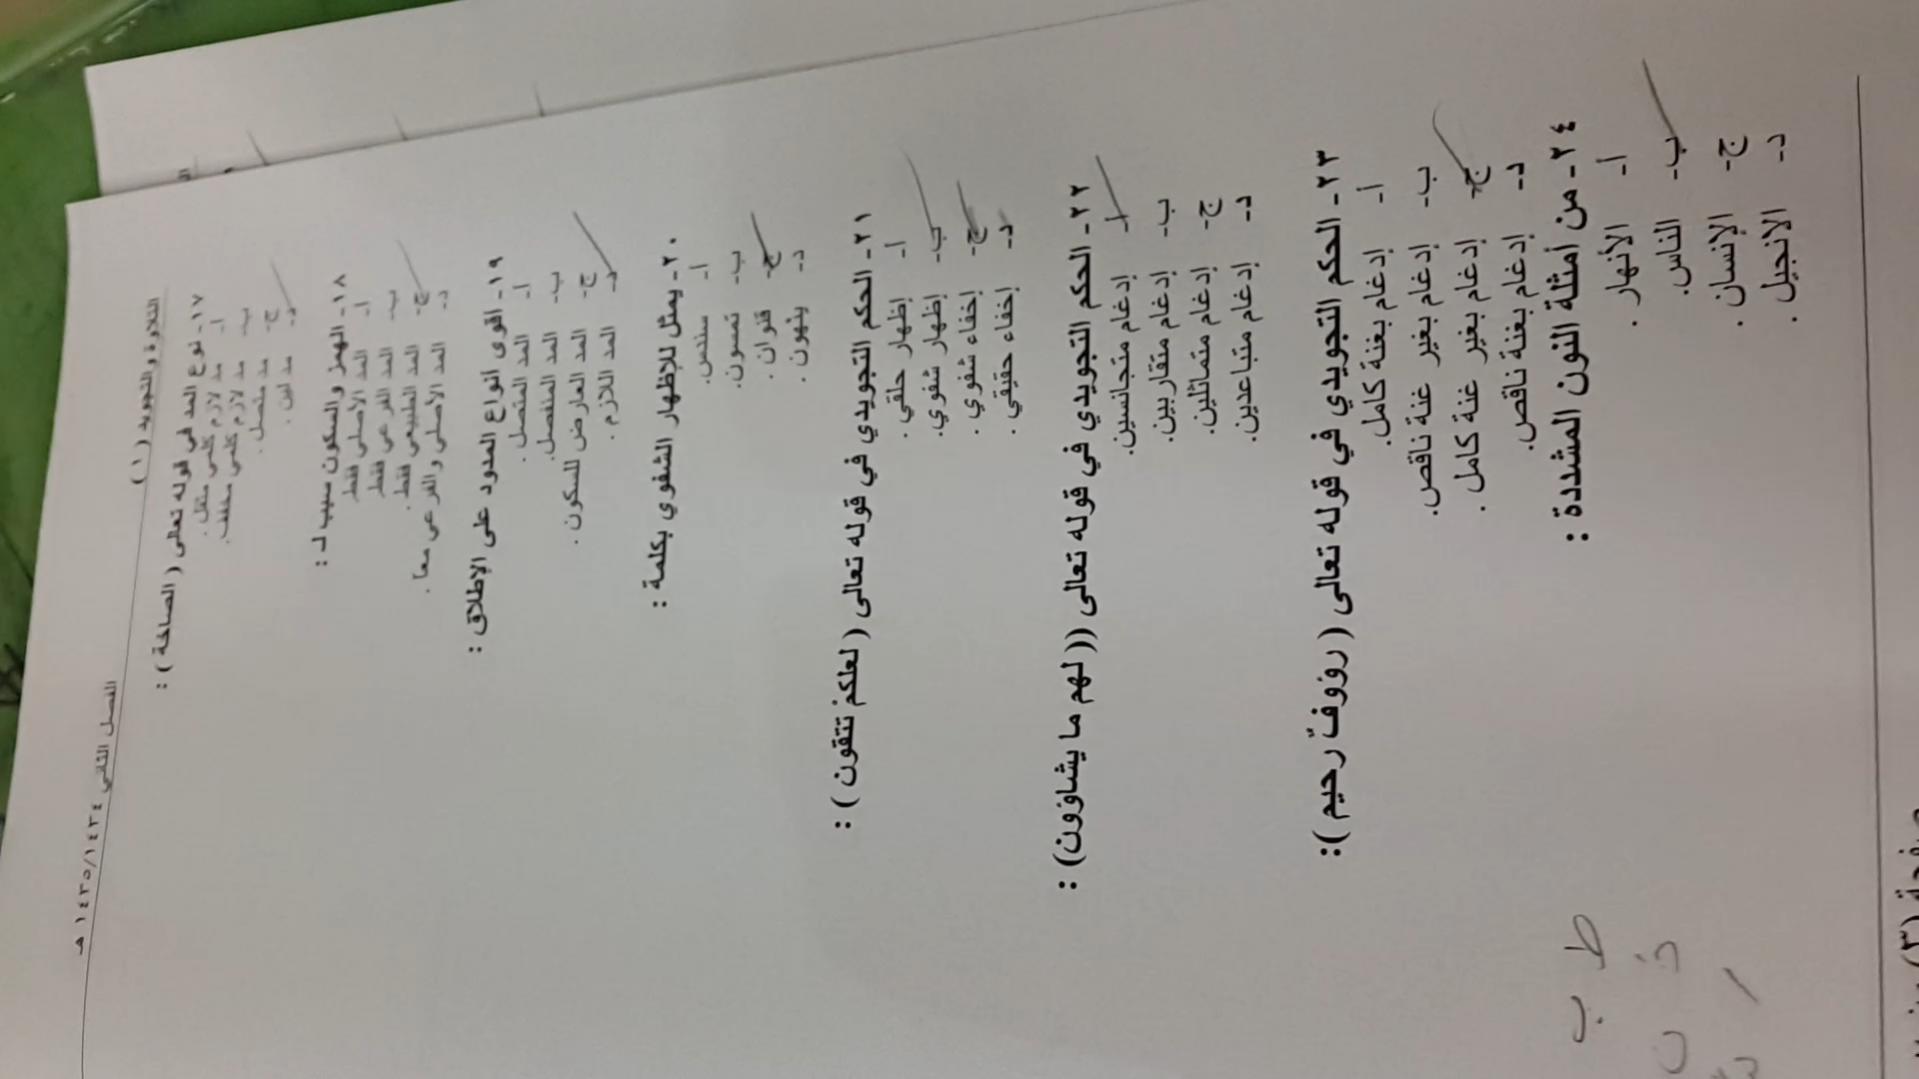 التلاوة والتجويد ( ١ )
الفصل الثاني ١٤٣٤/١٤٣٥ هـ
١٧- نوع المد في قوله تعالى ( الصاخة ) :
أ- مد لازم كلمي مثقل .
ب- مد لازم كلمي مخفف.
ج- مد متصل .
د- مد لين .
١٨- الهمز والسكون سبب لـ :
أ- المد الأصلي فقط
ب- المد الفرعي فقط
ج- المد الطبيعي فقط.
د- المد الأصلي والفرعي معا .
١٩- أقوى أنواع المدود على الإطلاق :
أ- المد المتصل .
ب- المد المنفصل.
ج- المد العارض للسكون .
د- المد اللازم .
٢٠- يمثل للإظهار الشفوي بكلمة :
أ- سندس.
ب- تمسون.
ج- قنوان .
د- ينهون .
٢١- الحكم التجويدي في قوله تعالى ( لعلكم تتقون ) :
أ- إظهار حلقي .
ب- إظهار شفوي.
ج- إخفاء شفوي .
د- إخفاء حقيقي .
٢٢- الحكم التجويدي في قوله تعالى ((لهم ما يشاؤون) :
أ- إدغام متجانسين.
ب- إدغام متقاربين.
ج- إدغام متماثلين.
د- إدغام متباعدين.
٢٣- الحكم التجويدي في قوله تعالى ( رؤوفٌ رحيم ):
أ- إدغام بغنة كامل.
ب- إدغام بغير غنة ناقص.
ج- إدغام بغير غنة كامل .
د- إدغام بغنة ناقص.
٢٤- من أمثلة النون المشددة :
أ- الأنهار .
ب- الناس.
ج- الإنسان .
د- الانجيل .